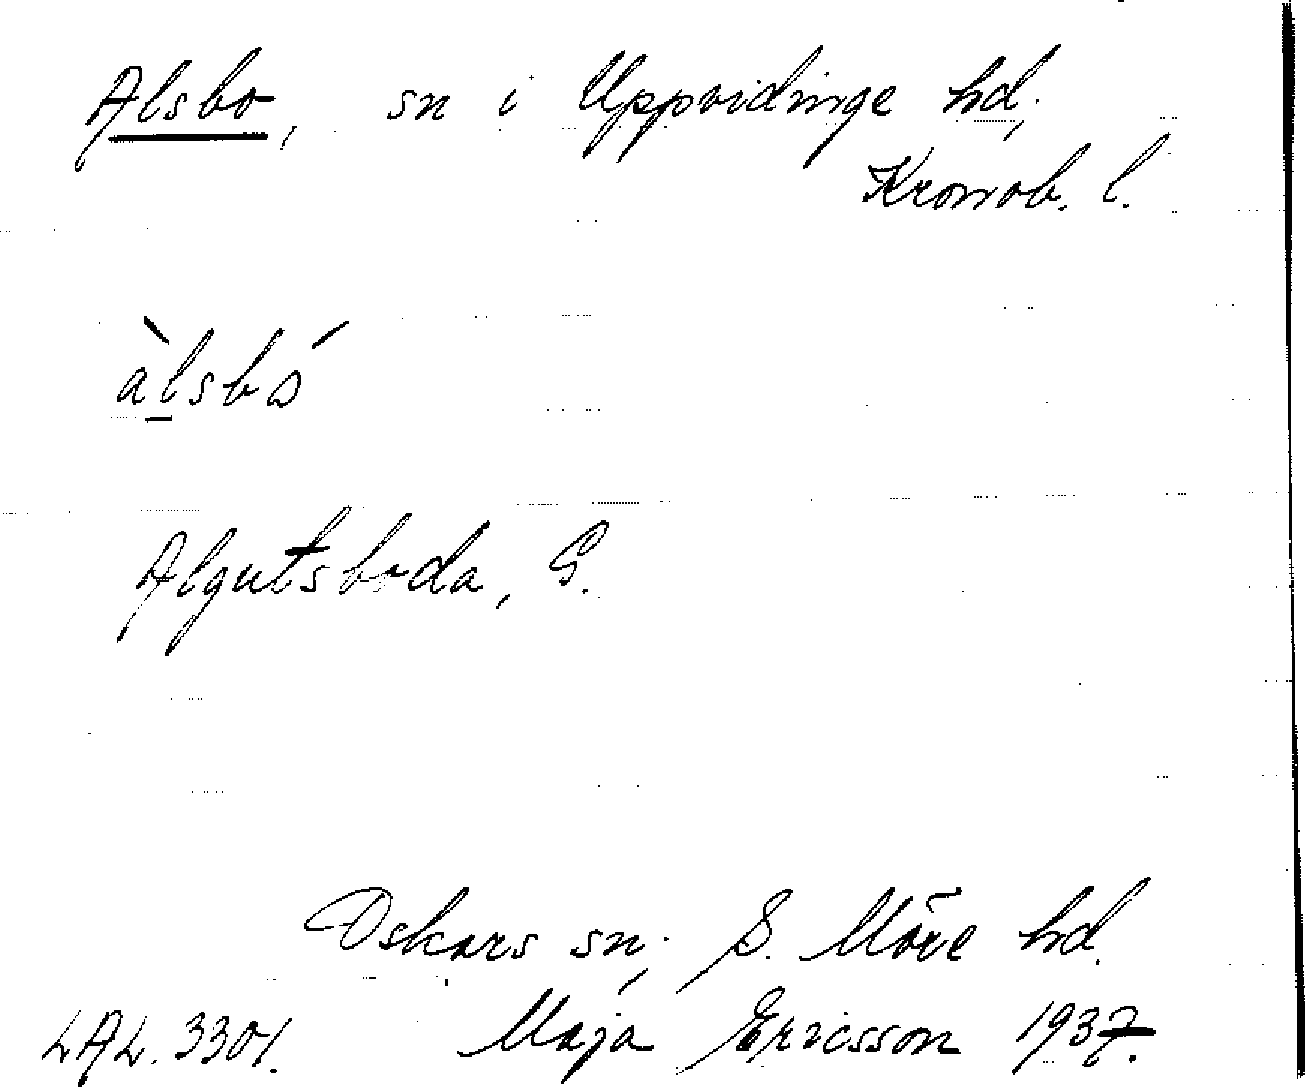 Alsbo, sn i Uppvidinge hd,
Kronob. l.
àlsbó
Algutsboda, G.
Oskars sn, S. Möre hd.
LAL. 3301. Maja Ericsson 1937.